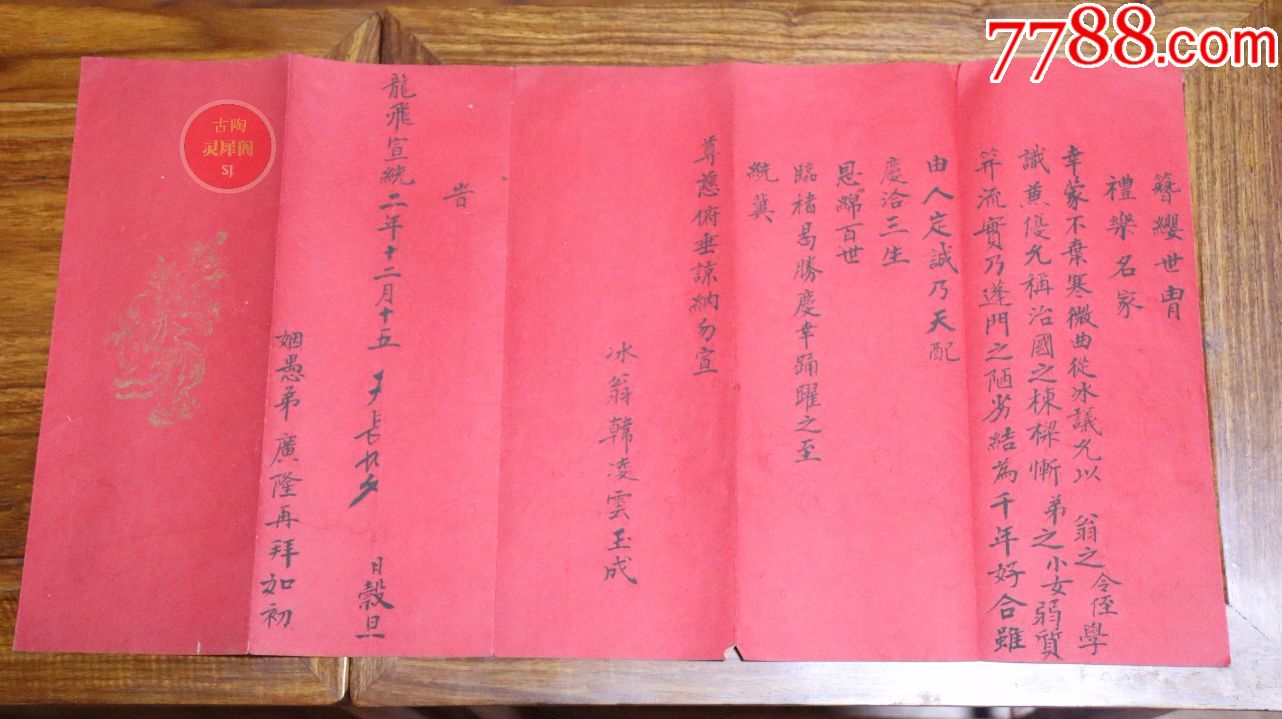 簪纓世冑
禮樂名家
幸蒙不棄寒微曲從冰議允以 翁之令侄學
識兼優允稱治國之棟樑慚 弟之小女弱質
笄流實乃蓬門之陋劣結為千年好合雖
由人定誠乃天配
慶洽三生
恩綿百世
臨褚曷勝慶幸踊躍之至
統冀
尊慈俯垂諒納勿宣
冰翁韓凌雲玉成
旹
龍飛宣統二年十二月十五 日穀旦
姻愚弟廣隆再拜如初
古陶
灵犀阁
SJ
7788.com